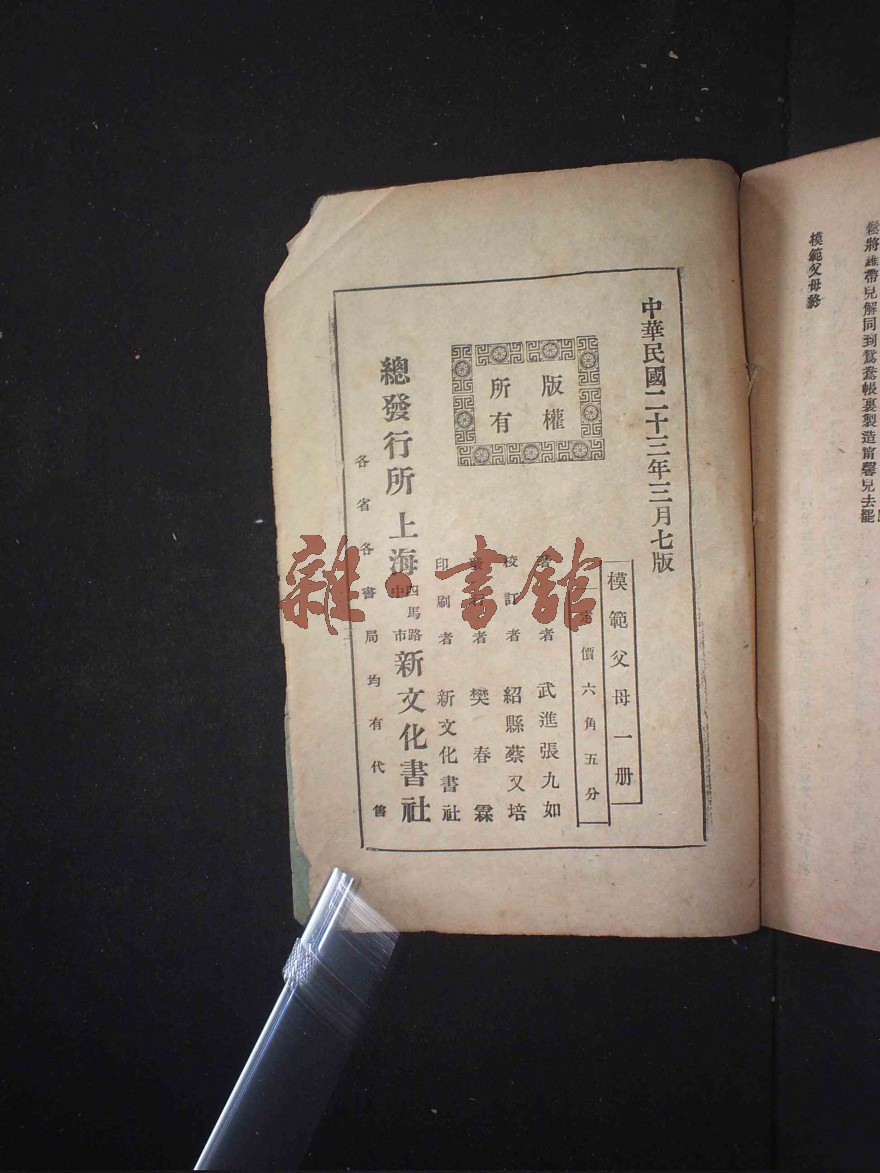 鬆將誰帶兒解同到鴛鴦帳裏製造甯馨兒去罷
模範父母終
中華民國二十三年三月七版
版權
所有
模範父母一册
定價六角五分
著者 武進張九如
校訂者 紹縣蔡又培
發行者 樊春霖
印刷者 新文化書社
總發行所 上海四馬路中市新文化書社
各省各書局均有代售
雜·書館